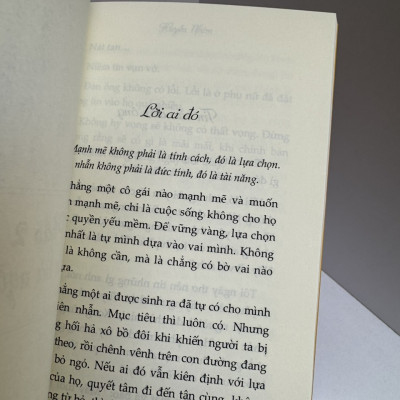 Lời ai đó
Mạnh mẽ không phải là tính cách, đó là lựa chọn.
nhẫn không phải là đức tính, đó là tài năng.
hẳng một cô gái nào mạnh mẽ và muốn
mạnh mẽ, chỉ là cuộc sống không cho họ
quyền yếu mềm. Để vững vàng, lựa chọn
nhất là tự mình dựa vào vai mình. Không
là không cần, mà là chẳng có bờ vai nào
ựa.
hẳng một ai được sinh ra đã tự có cho mình
iên nhẫn. Mục tiêu thì luôn có. Nhưng
g hối hả xô bồ đôi khi khiến người ta bị
theo, rồi chênh vênh trên con đường đang
bỏ ngỏ. Nếu ai đó vẫn kiên định với lựa
của họ, quyết tâm đi đến tận cùng,